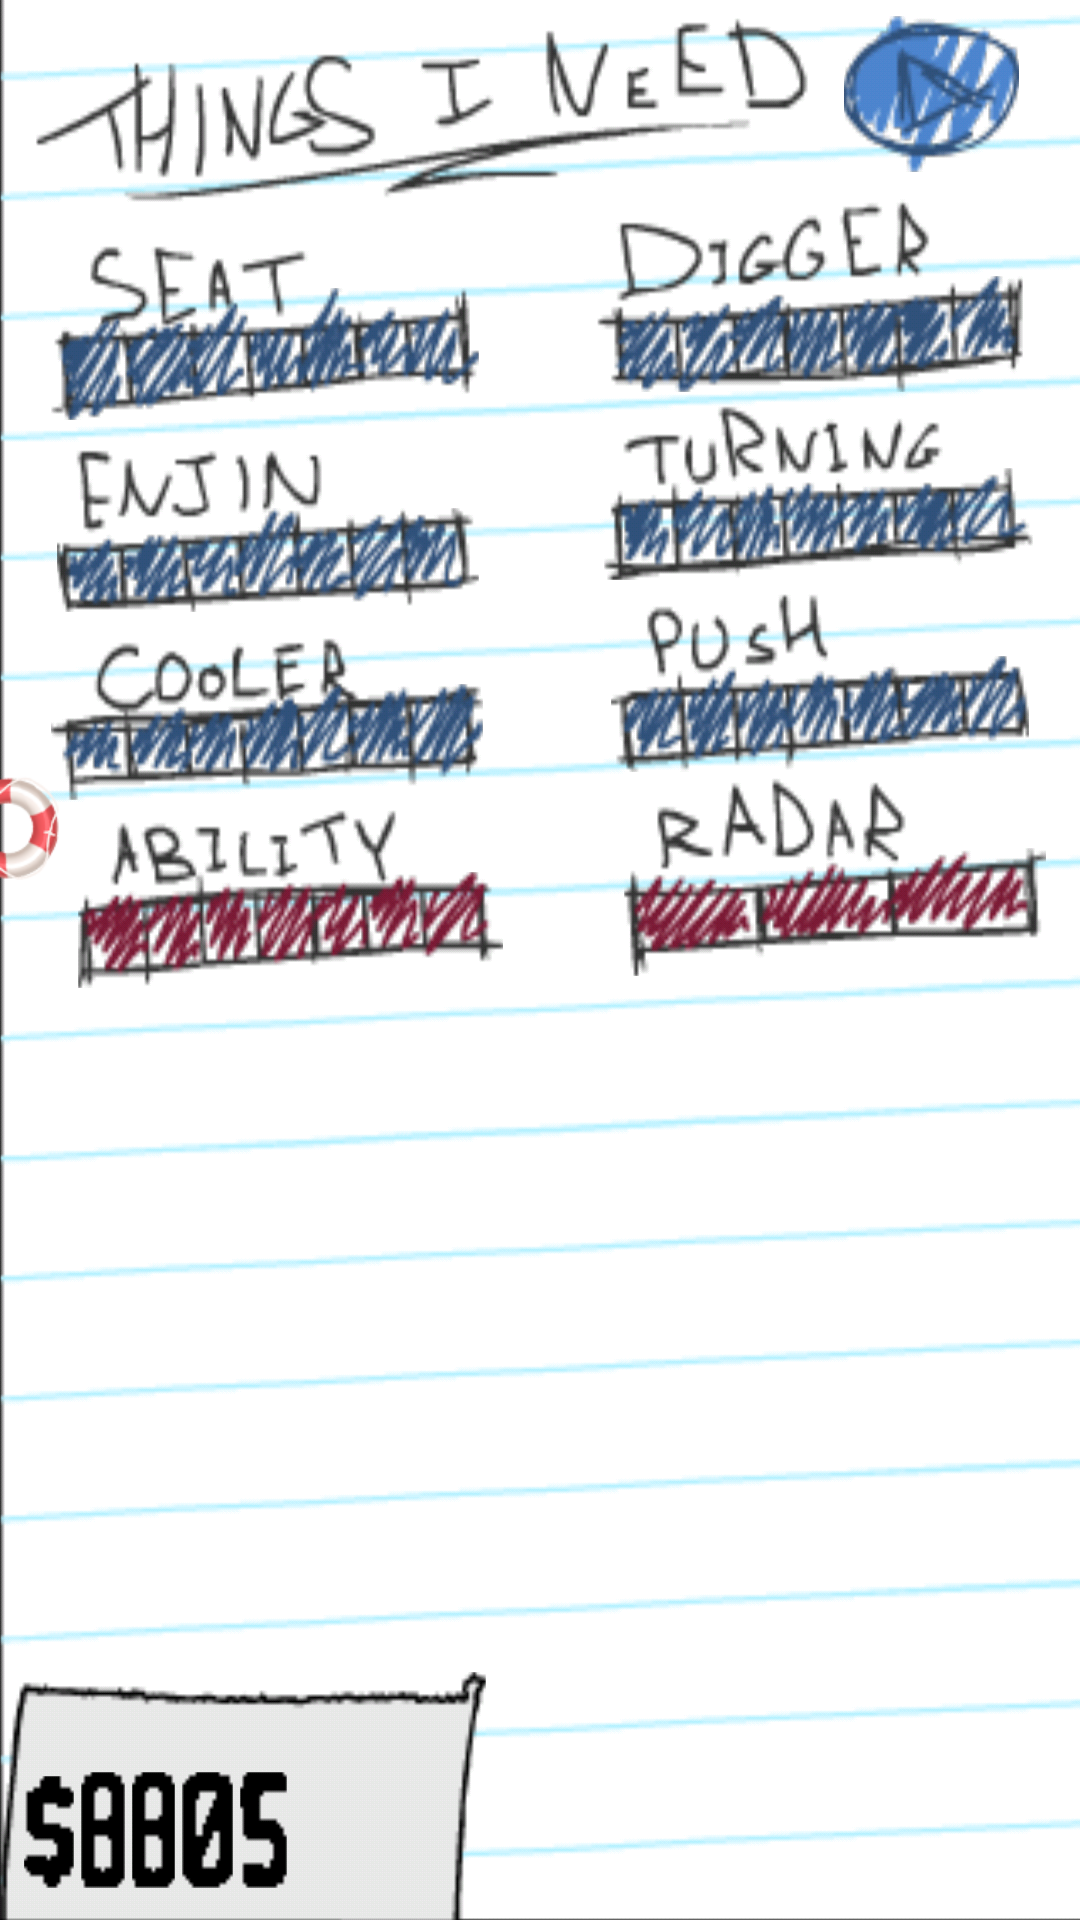 THINGS I NEED
SEAT
DIGGER
ENJIN
TURNING
COOLER
PUSH
ABILITY
RADAR
$8805